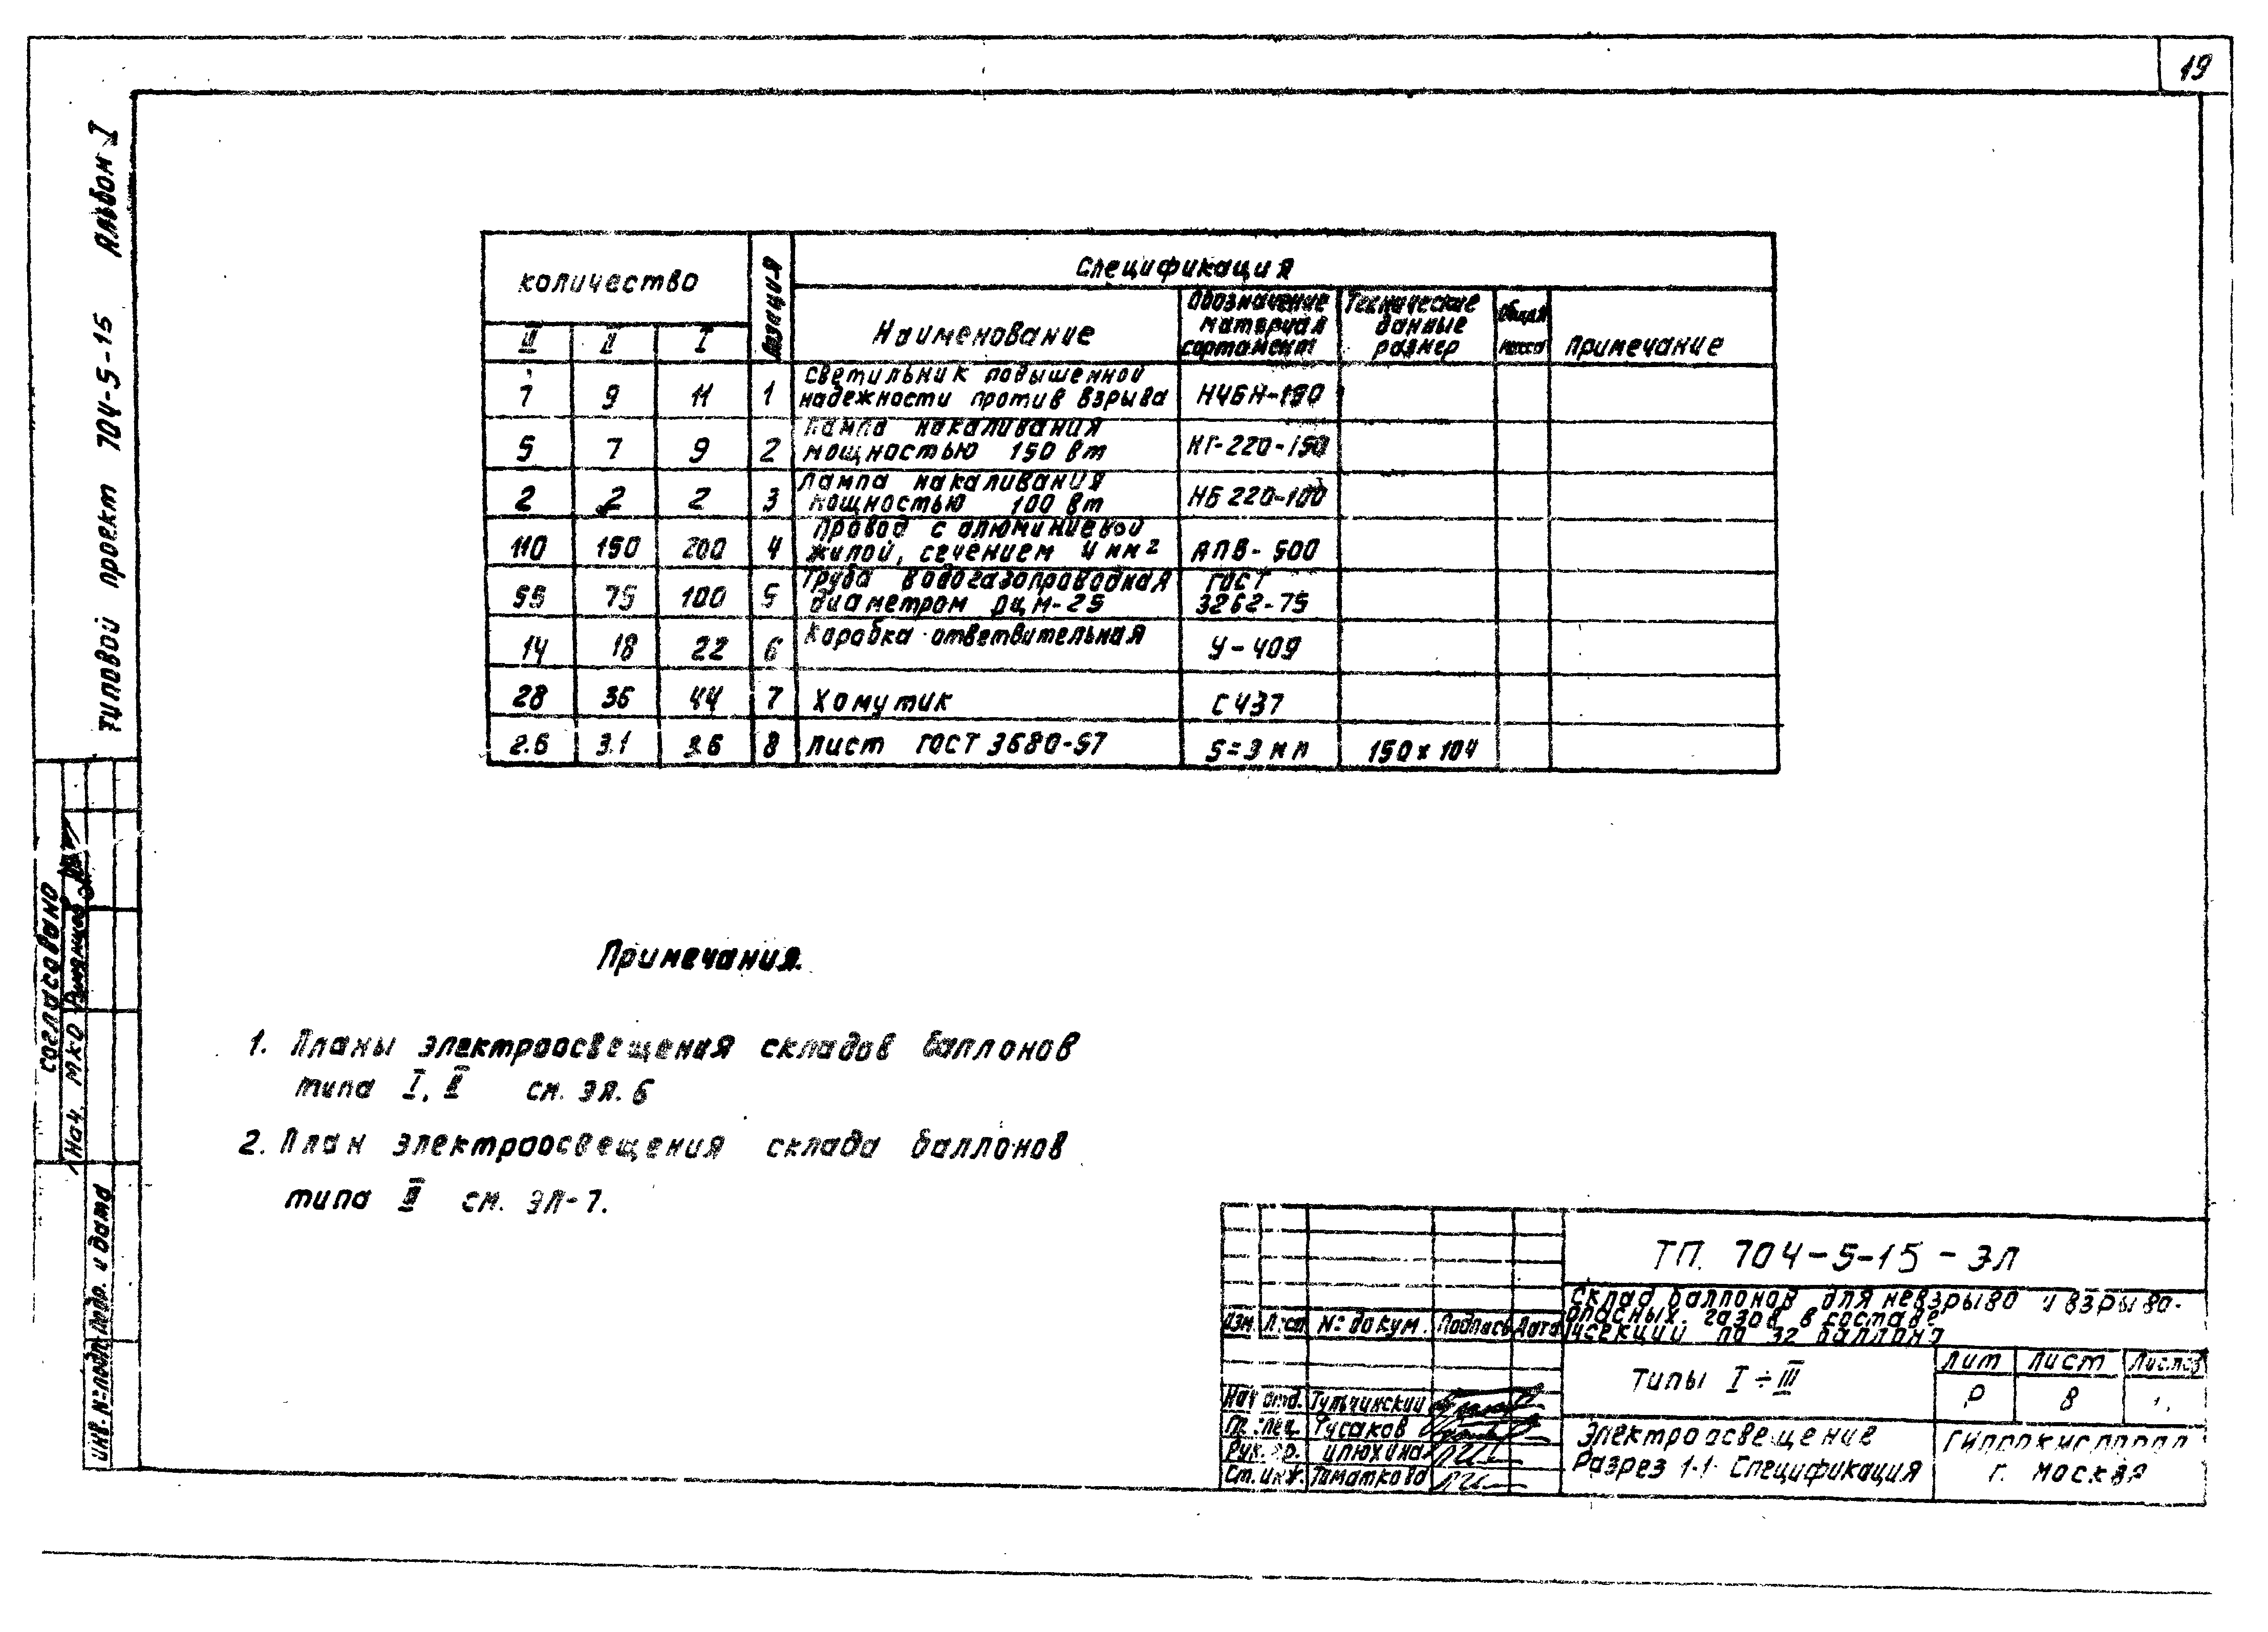 19
Типовой проект 704-5-15 Альбом I
количество
Позиция
Спецификация
III II I
Наименование
Обозначение
материал
сортамент
Технические
данные
размер
Общая
масса
примечание
7 9 11 1
светильник повышенной
надежности против взрыва
Н4БН-150
5 7 9 2
Лампа накаливания
мощностью 150 вт
НГ-220-150
2 2 2 3
Лампа накаливания
мощностью 100 вт
НБ 220-100
110 150 200 4
Провод с алюминиевой
жилой, сечением 4 мм2
АПВ-500
55 75 100 5
Труба водогазопроводная
диаметром РЦМ-25
ГОСТ
3262-75
14 18 22 6
Коробка ответвительная
У-409
28 36 44 7 Хомутик С437
2.6 3.1 3.6 8 лист ГОСТ 3680-57 S=3мм 150х104
Примечания.
1. Планы электроосвещения складов баллонов
типа I, II см. эл. 6
2. План электроосвещения склада баллонов
типа III см. ЭЛ-7.
согласовано
Нач. МКО
Инв. № подл. Подр. и дата
ТП. 704-5-15 - ЭЛ
Склад баллонов для невзрыво и взрыво-
опасных газов в составе
4 секции по 32 баллона
Изм Лист № докум. Подпись Дата
Типы I ÷ III
Лит Лист Листов
Р 8
Нач отд. Тульчинский
Гл. спец. Чусаков
Рук. гр. Илюхина
Ст. инж. Томаткова
Электроосвещение
Разрез 1-1 Спецификация
Гипрокислород
г. Москва